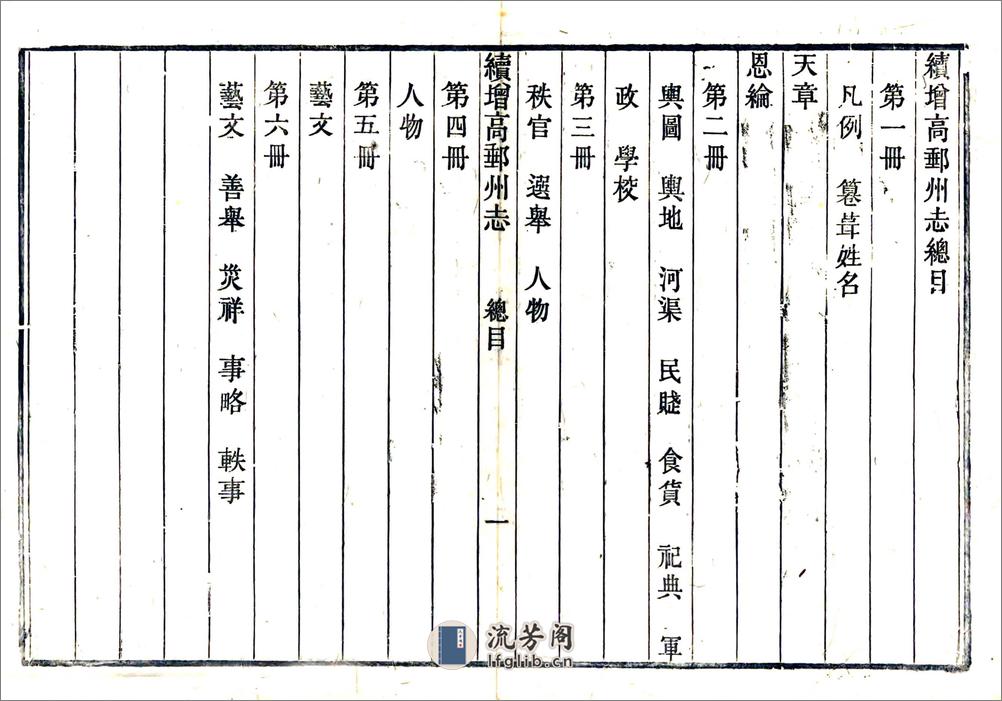 續增高郵州志總目
第一冊
凡例 篹葺姓名
天章
恩綸
第二冊
輿圖 輿地 河渠 民賤 食貨 祀典 軍
政 學校
第三冊
秩官 選舉 人物
續增高郵州志 總目 一
第四冊
人物
第五冊
藝文
第六冊
藝文 善舉 災祥 事略 軼事
流芳阁
lfglib.cn